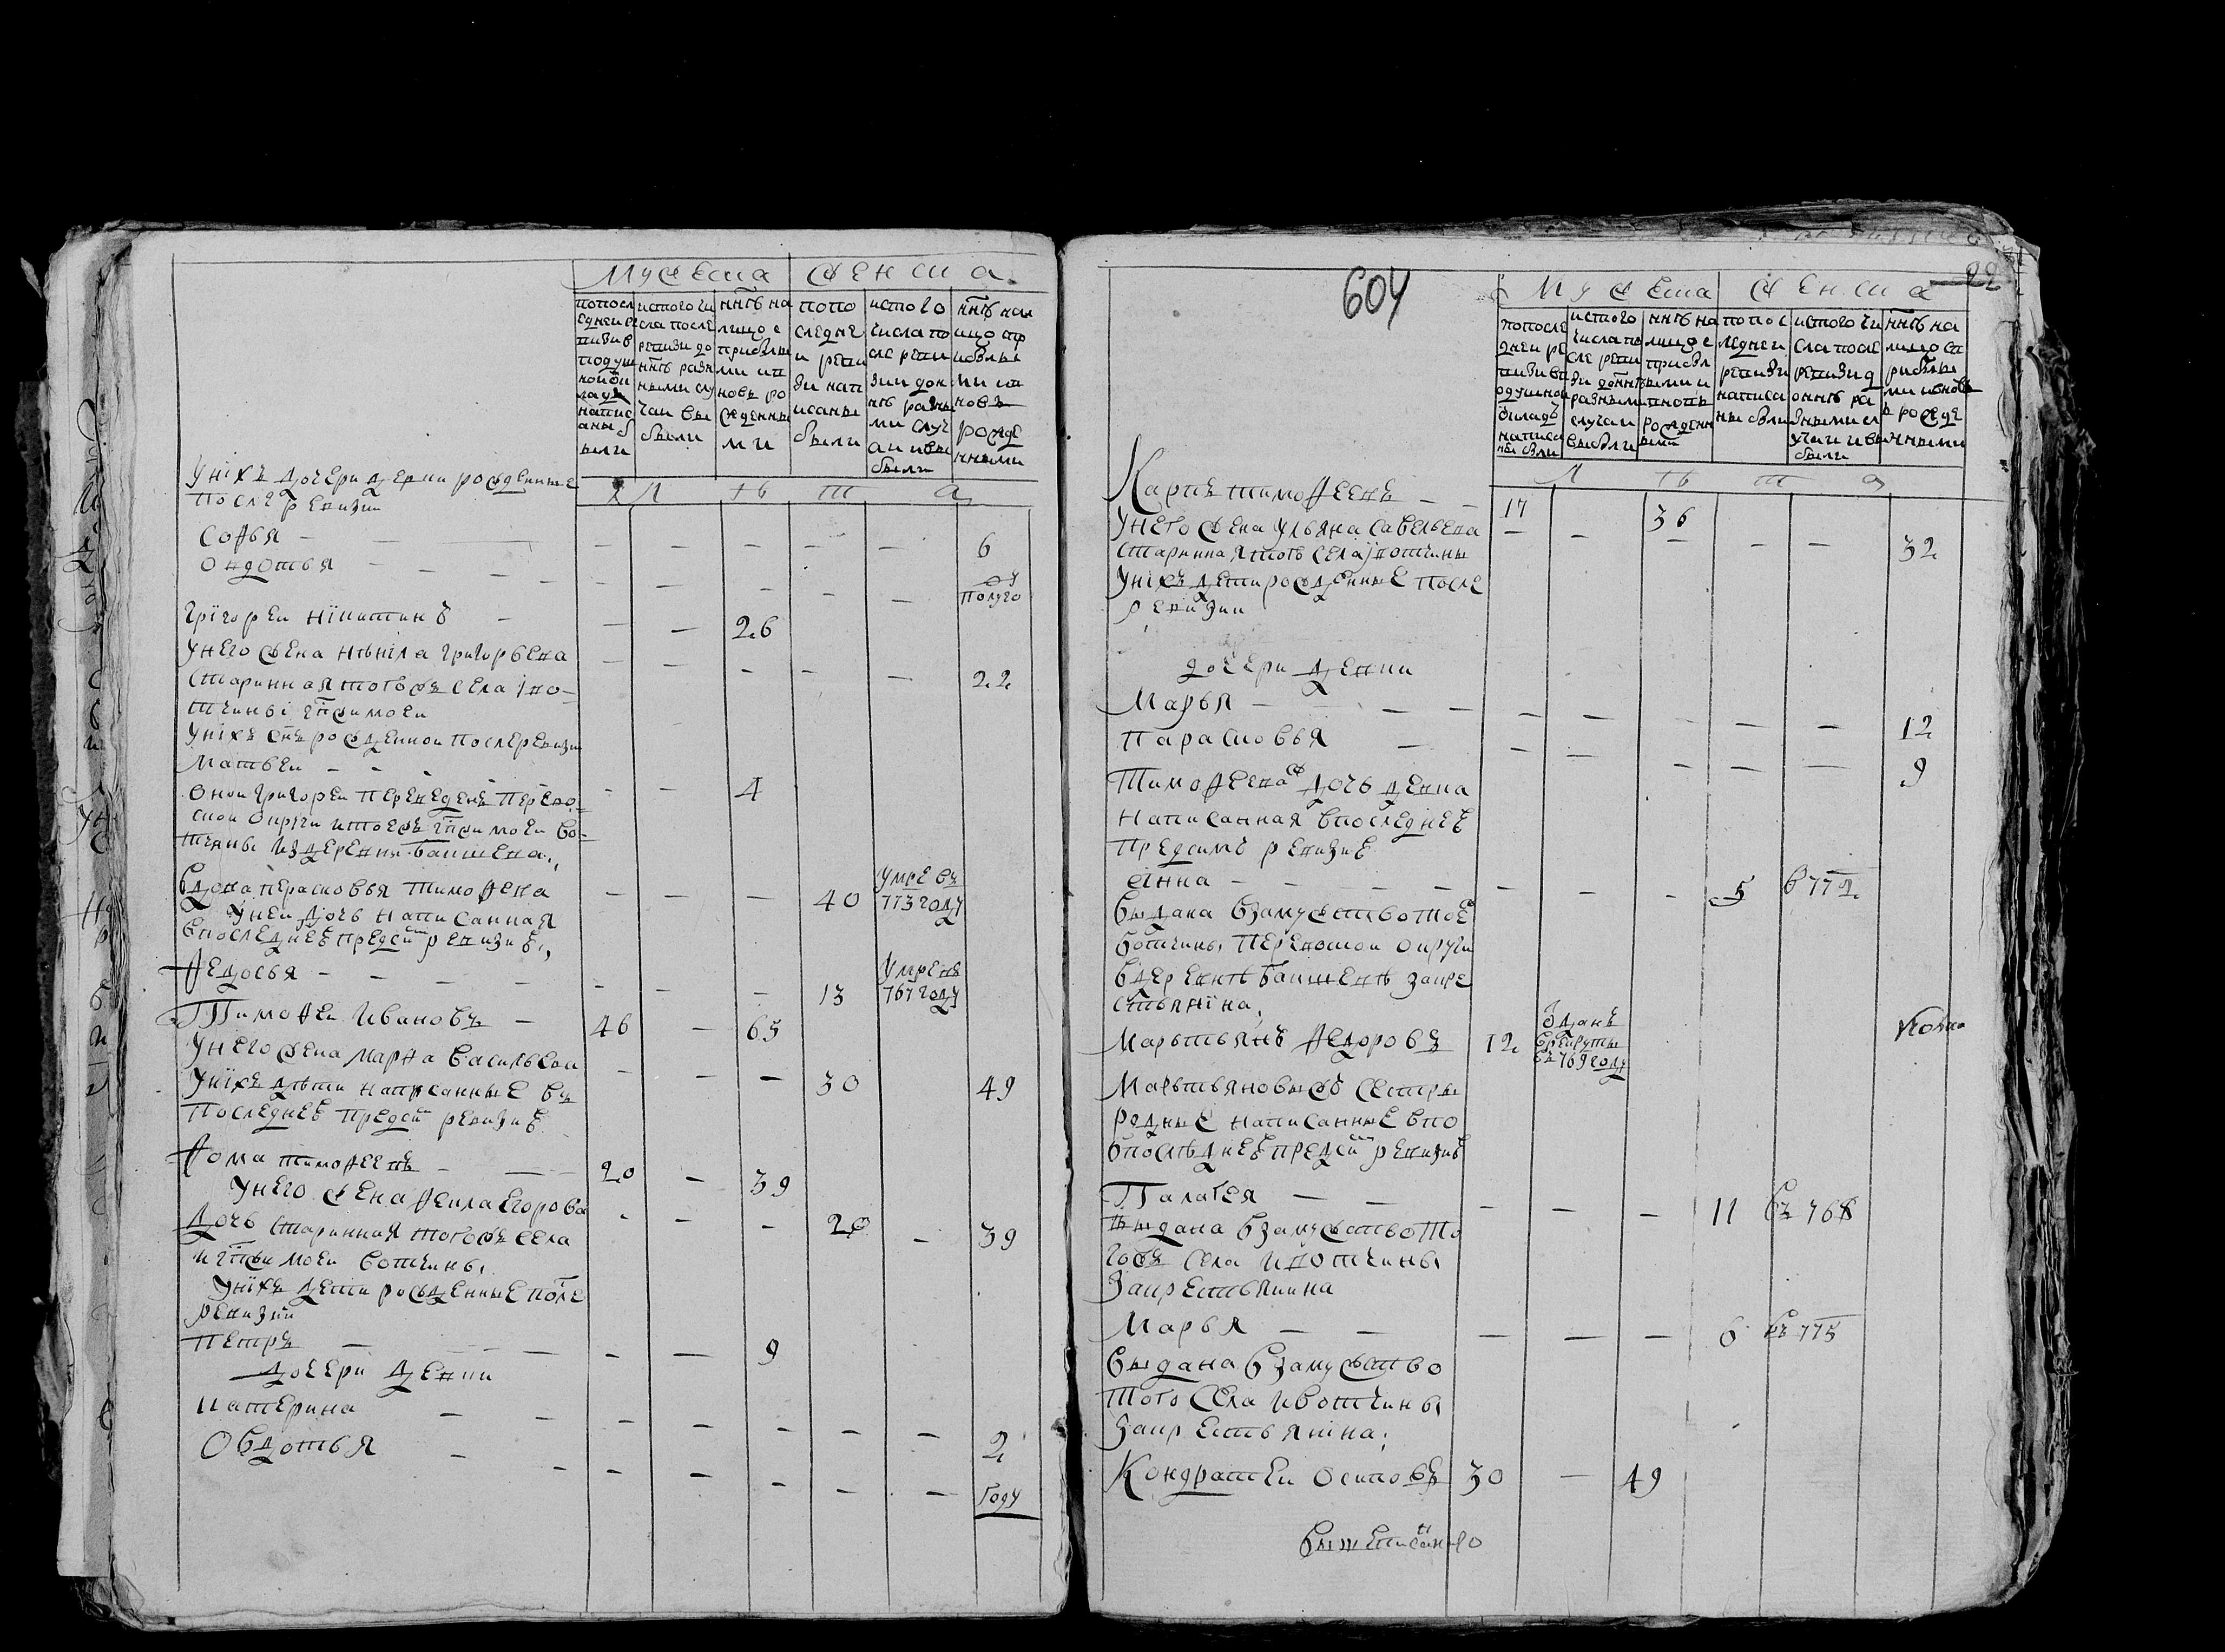 Мужеска
женска
попосл
едней ре
визи в
подуш
ной ок
ладъ
написаны б
ыли
истого чи
сла после
ревизи до
ннѣ разн
ными слу
чаи вы
были
ннѣ на
лицо с
прибылы
ми и в
новь ро
жденны
ми
попо
следне
и реви
зи нап
исаны
были
истого
числа по
сле реви
зии до н
нѣ разны
ми случ
аи вы
были
ннѣ нал
ицо пр
ибылы
ми и в
новъ
рожде
нными
лѣта
унїхъ дочери девки рожденные
после ревизии
софья 6
овдотья полуго
григореи нїкитинъ 26
унего жена нѣнїла григорьева 22
старинная тогожъ села їво
тчины гпжи моеи
унїхъ снъ рожденнои после ревизии
матвеи 4
онои григореи переведенъ перево
скои округи и тоежъ гпжи моеи во
тчины из деревни бакшева
вдова парасковья тимофева 40 умре въ 773 году
унеи дочь написанная
в последнеѣ пред сим ревизиѣ
федосья 13 умре въ 767 году
Тимофеи Ивановъ 46 65
унего жена марфа васильева 30 49
унїхъ дѣти написанные въ
последнеѣ пред сим ревизиѣ
фома тимофеевъ 20 39
унего жена фекла егорова 20 39
дочь старинная тогожъ села
и гпжи моеи вотчины
унїхъ дети рожденные после
ревизии
петръ 9
дочери девки
катерина 2
Овдотья году
604
22
Мужеска
женска
попосле
дней ре
визи в п
одушном
окладѣ
написа
ны были
истого
числа по
сле реви
зи до ннѣ
разными
случаи
выбыли
ннѣ на
лицо с
прибыл
ыми и
вновь
рожденн
ыми
попос
ледней
ревизи
написа
ны были
истого чи
сла после
ревизи д
о ннѣ ра
зными сл
учаи вы
были
ннѣ на
лицо с п
рибылы
ми и внов
ь рожде
нными
лѣта
Карпъ тимофеевъ 17 36
унего жена ульяна савельева 32
старинная тогожъ села івотчины
унїхъ дети рожденные после
ревизии
дочери девки
Марья 12
парасковья 9
Тимофеева ж дочь девка
написанная в последнеѣ
пред симъ ревизиѣ
анна 5 в 772
выдана в замужство тоѣ
вотчины перевоскои округи
в деревнѣ бакшевѣ за кре
стьянїна
Мартьянъ федоровъ 12 зданъ в рекруты въ 769 году
Мартьяновы жъ сестры
родные написанные в по
в послѣднеѣ пред сим ревизиѣ
Палагея 11 въ 768
выдана в замужство то
гожъ села и вотчины
за крестьянина
Марья 6 въ 775
выдана в замужство
того села и вотчины
за крестьянїна
Кондратеи осиповъ 30 49